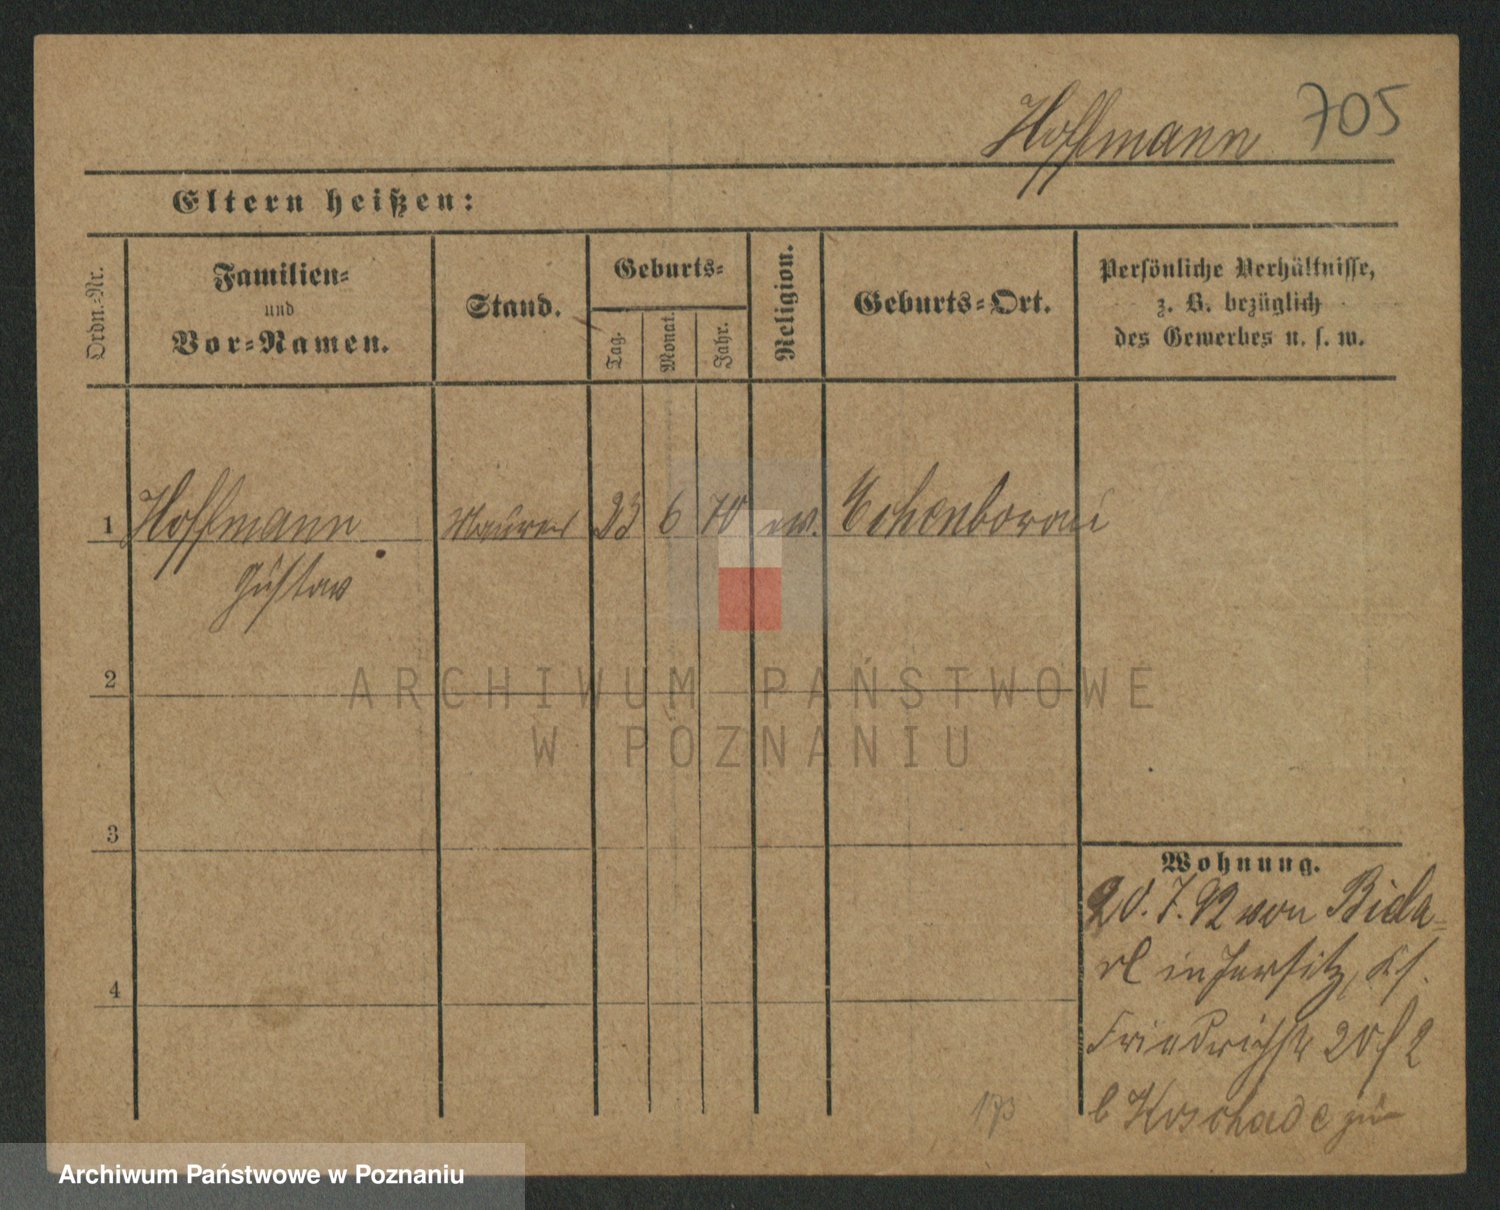 Hoffmann 705
Eltern heißen:
Ordn.-Nr.
Familien-
und
Vor-Namen.
Stand.
Geburts-
Tag.
Monat.
Jahr.
Religion.
Geburts-Ort.
Persönliche Verhältnisse,
z. B. bezüglich
des Gewerbes u. s. w.
1 Hoffmann Maurer 23 6 70 ev.
Gustav
2
3
4
ARCHIWUM PAŃSTWOWE
W POZNANIU
Wohnung.
20. 7. 92 von
in Jersitz,
Friedrichstr 20
zu
Archiwum Państwowe w Poznaniu